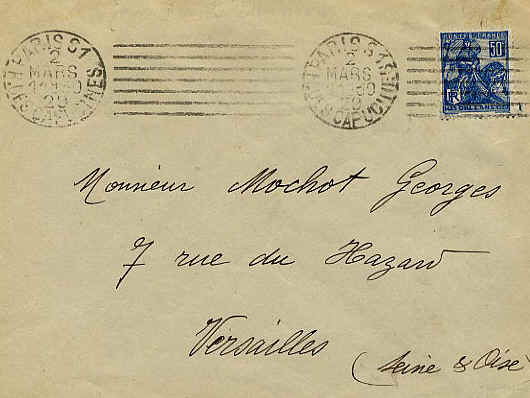 PARIS S1
2
MARS
29
CAPUCINES
PARIS S1
2
MARS
29
CAPUCINES
50c
RF
Monsieur Mochot Georges
7 rue du Hazard
Versailles (Seine & Oise